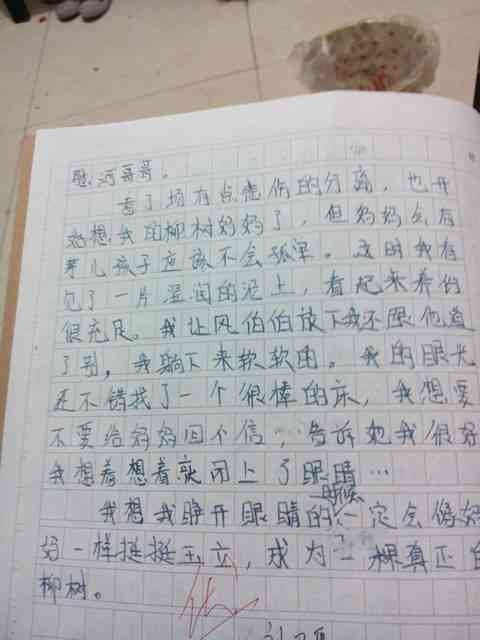 愁河哥哥。
看了场有点悲伤的分离，也开
始想我的柳树妈妈了，但妈妈会有
孩子应该不会孤单。这时我看
见了一片湿润的泥土，看起来养份
很充足。我让风伯伯放下我还跟他道
了别，我躺下来软软的。我的眼光
还不错找了一个很棒的床，我想要
不要给妈妈回个信，告诉她我很好
我想着想着就闭上了眼睛…
我想我睁开眼睛的时候一定会像妈
妈一样挺挺玉立，成为一棵真正的
柳树。